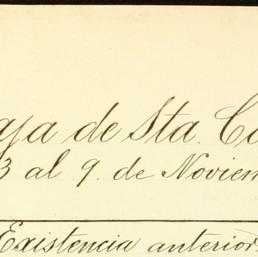 aja de Sta. C
3 al 9. de Noviem
Existencia anterior